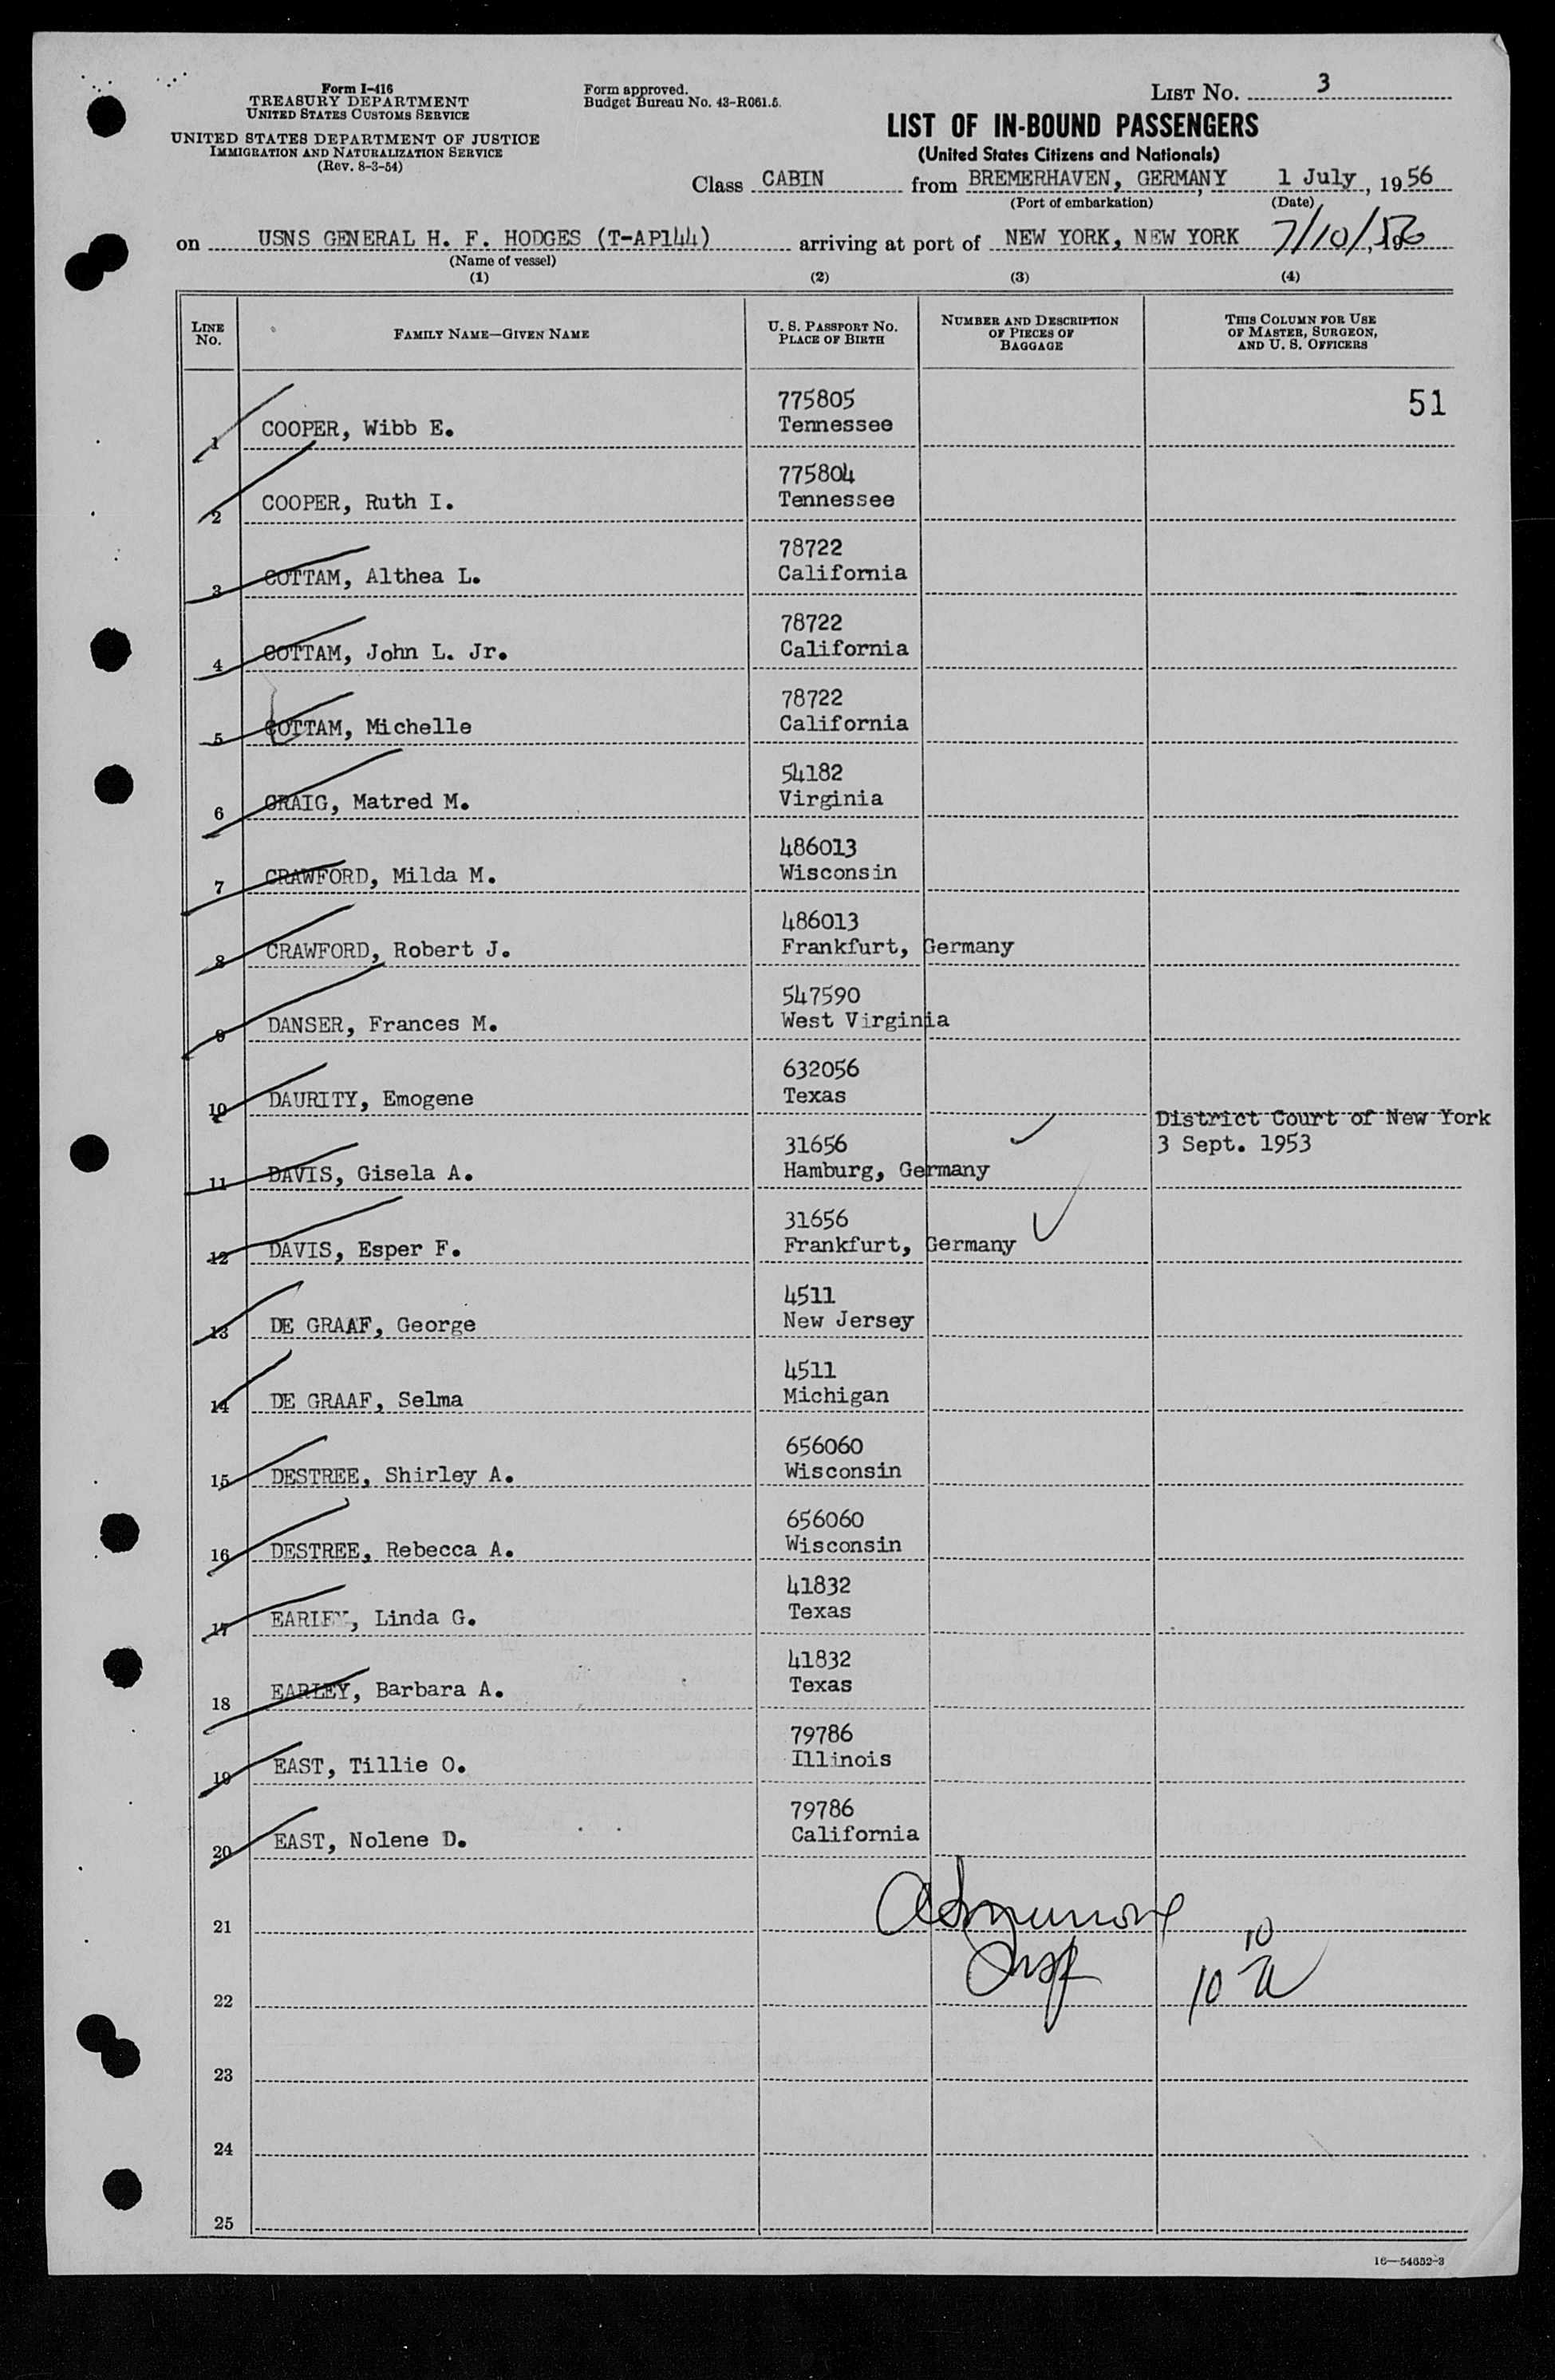 Form I-416
TREASURY DEPARTMENT
UNITED STATES CUSTOMS SERVICE
UNITED STATES DEPARTMENT OF JUSTICE
IMMIGRATION AND NATURALIZATION SERVICE
(Rev. 8-3-54)
Form approved.
Budget Bureau No. 43-R061.5.
LIST NO. 3
LIST OF IN-BOUND PASSENGERS
(United States Citizens and Nationals)
Class CABIN from BREMERHAVEN, GERMANY, 1 July, 1956
(Port of embarkation) (Date)
on USNS GENERAL H. F. HODGES (T-AP144) arriving at port of NEW YORK, NEW YORK 7/10/56
(Name of vessel)
(1) (2) (3) (4)
LINE NO. FAMILY NAME—GIVEN NAME U. S. PASSPORT NO. PLACE OF BIRTH NUMBER AND DESCRIPTION OF PIECES OF BAGGAGE THIS COLUMN FOR USE OF MASTER, SURGEON, AND U. S. OFFICERS
51
775805
1 COOPER, Wibb E. Tennessee
775804
2 COOPER, Ruth I. Tennessee
78722
3 COTTAM, Althea L. California
78722
4 COTTAM, John L. Jr. California
78722
5 COTTAM, Michelle California
54182
6 CRAIG, Matred M. Virginia
486013
7 CRAWFORD, Milda M. Wisconsin
486013
8 CRAWFORD, Robert J. Frankfurt, Germany
547590
9 DANSER, Frances M. West Virginia
632056
10 DAURITY, Emogene Texas
District Court of New York
31656 3 Sept. 1953
11 DAVIS, Gisela A. Hamburg, Germany
31656
12 DAVIS, Esper F. Frankfurt, Germany
4511
13 DE GRAAF, George New Jersey
4511
14 DE GRAAF, Selma Michigan
656060
15 DESTREE, Shirley A. Wisconsin
656060
16 DESTREE, Rebecca A. Wisconsin
41832
17 EARLEY, Linda G. Texas
41832
18 EARLEY, Barbara A. Texas
79786
19 EAST, Tillie O. Illinois
79786
20 EAST, Nolene D. California
21
Insp 10
22 10
23
24
25
16—54652-3